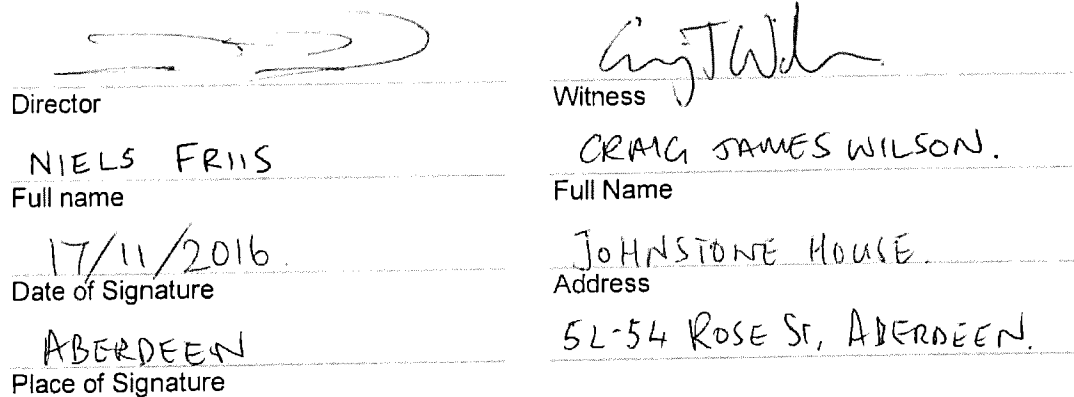 Director
NIELS FRIIS
Full name
17/11/2016.
Date of Signature
ABERDEEN
Place of Signature
Craig J Wilson
Witness
CRAIG JAMES WILSON.
Full Name
JOHNSTONE HOUSE.
Address
52-54 ROSE ST, ABERDEEN.